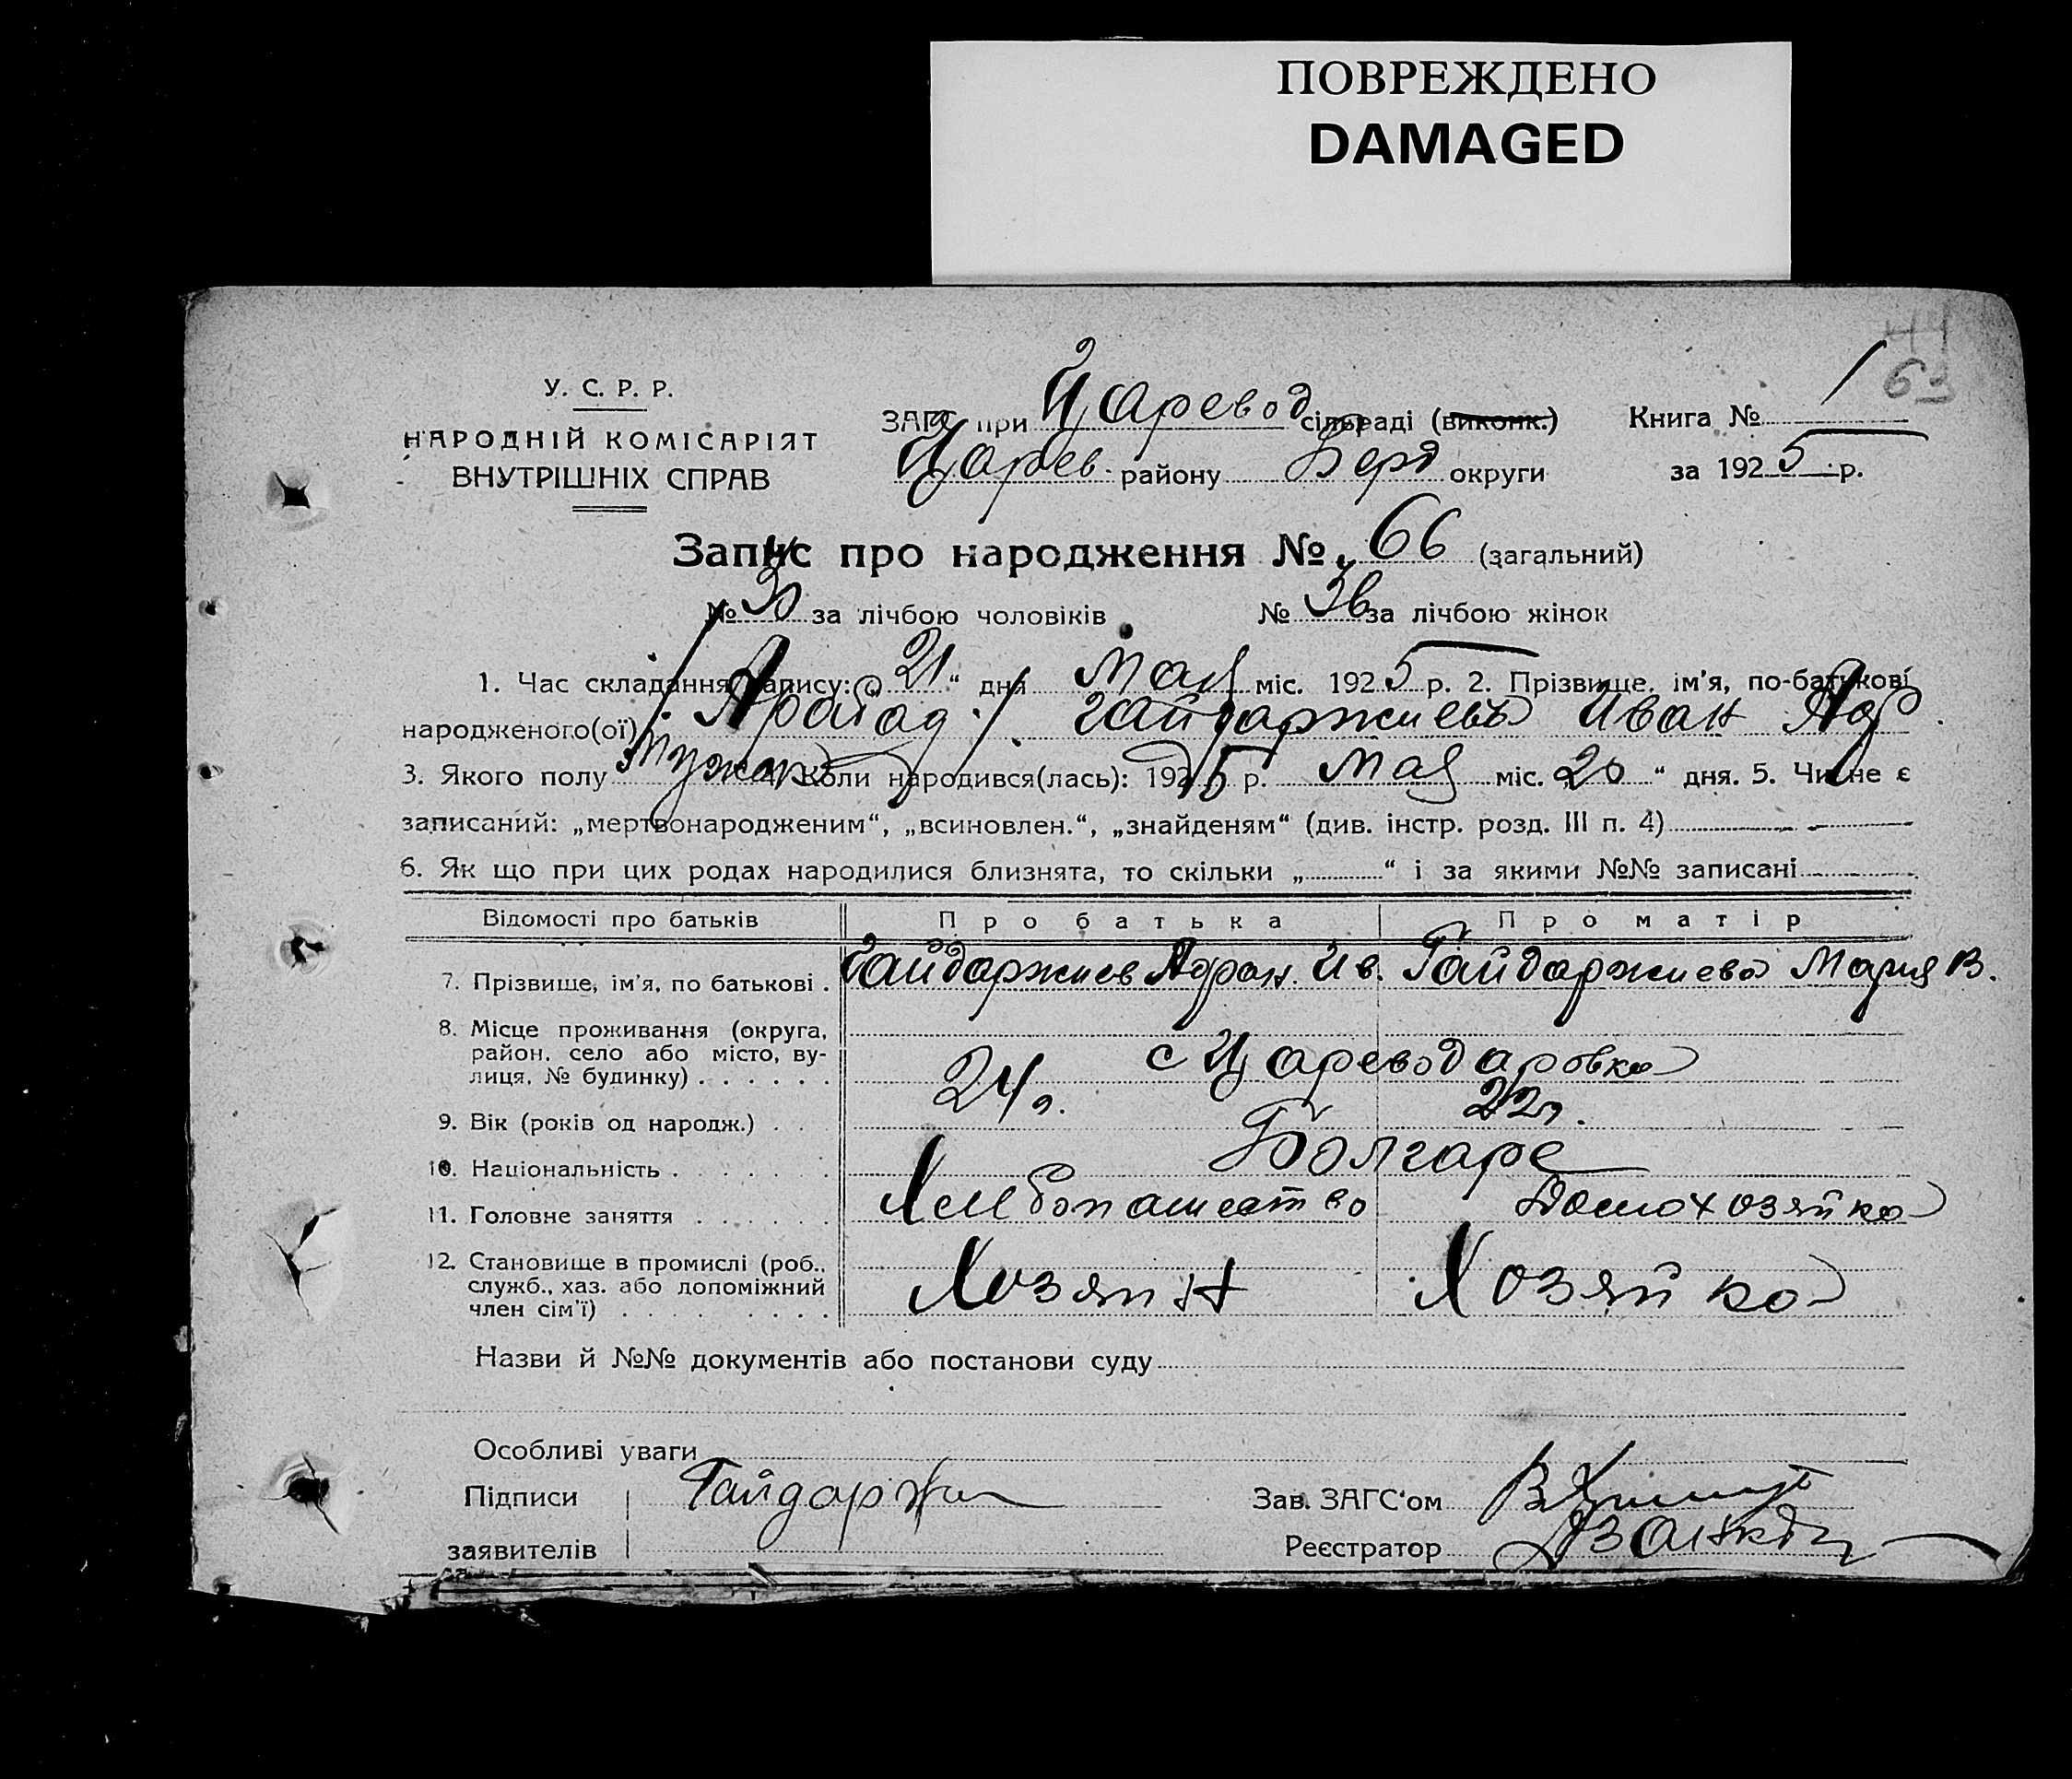 ПОВРЕЖДЕНО
DAMAGED
44
63
У. С. Р. Р.
НАРОДНІЙ КОМІСАРІЯТ
ВНУТРІШНІХ СПРАВ
ЗАГС при Царевод сільраді (виконк.) Книга № 1
Царев. району Берд округи за 1925 р.
Запис про народження № 66 (загальний)
№ 30 за лічбою чоловіків № 36 за лічбою жінок
1. Час складання запису: „21“ дня Мая міс. 1925 р. 2. Прізвище, ім'я, по-батькові
народженого(ої) Гайдаржиевъ Иван
3. Якого полу Мужск Коли народився(лась): 1925 р. Мая міс. „20“ дня. 5. Чи не є
записаний: „мертвонародженим“, „всиновлен.“, „знайденям“ (див. інстр. розд. III п. 4)
6. Як що при цих родах народилися близнята, то скільки „ “ і за якими №№ записані
Відомості про батьків Про батька Про матір
7. Прізвище, ім'я, по батькові . Гайдаржиев Адрон. Ив. Гайдаржиева Мария В.
8. Місце проживання (округа,
район, село або місто, ву-
лиця, № будинку) . . . . . . с Цареводаровка
9. Вік (років од народж.) . . 24 г. 22 г.
10. Національність . . . . . Болгаре
11. Головне заняття . . . . . . Хлебопашество Домохозяйка
12. Становище в промислі (роб.,
служб., хаз. або допоміжний
член сім'ї) . . . . . . Хозяин Хозяйка
Назви й №№ документів або постанови суду
Особливі уваги
Підписи Гайдаржи Зав. ЗАГС'ом
заявителів Реєстратор